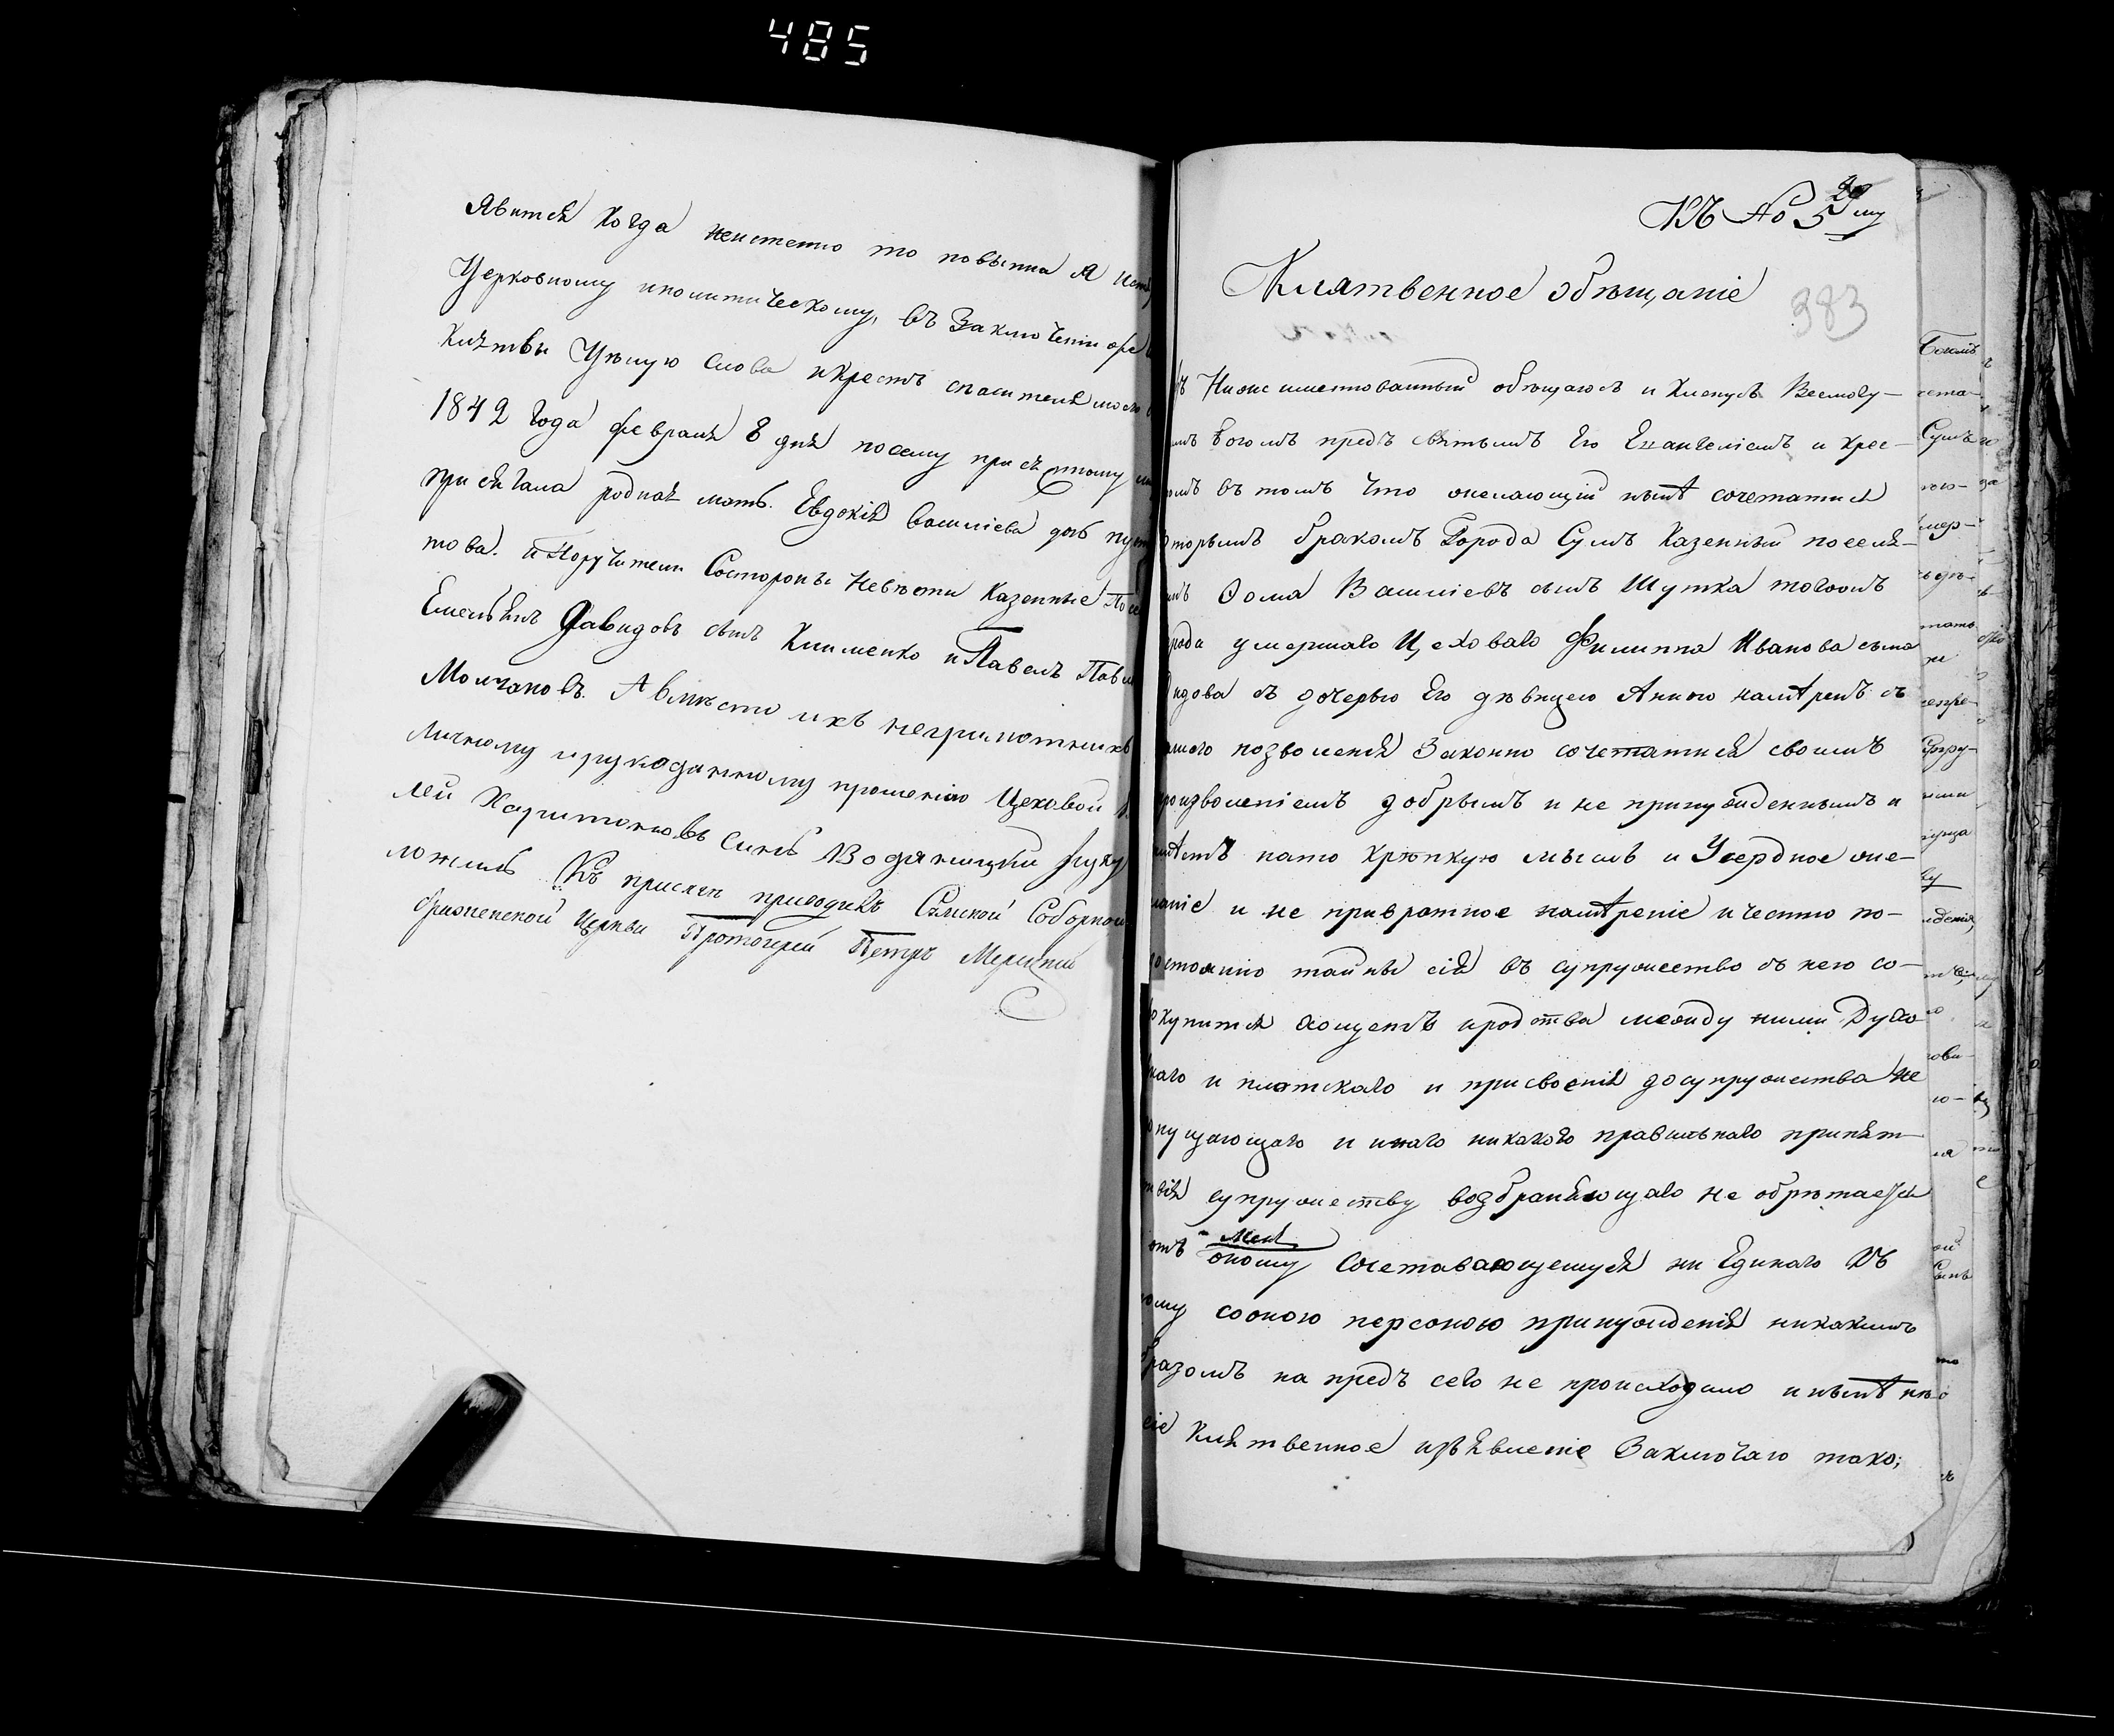 485
Явится когда неистенно то повѣнна я
Церковному иполитическому, въ Заключенiи
Клятвы Цѣлую слова икрестъ спасителя моего
1842 года февраля 8 дня посему присяжному
присягала родная мать. Евдокiя василiева дочь
това. и Поручители Состороны невѣсты казенные
Емельянъ Давидовъ сынъ Клименко и Павелъ
Молчановъ. А вмѣсто ихъ неграмотныхъ
личному ирукоданному прошенiю Цеховой
лей Харитоновъ Сынъ Водяницкий руку
ложилъ Къ присяги приводилъ Сумской Соборной
браженской Церкви Протоiерей Петръ
Къ No 5 му
29
Клятвенное обѣщанiе
383
Ниже имянованный обѣщаюсь и Клянусь Всемогу-
Богомъ предъ святымъ Его Евангелiемъ и крес-
въ томъ что желающiй нынѣ сочетатися
вторымъ бракомъ Города Сумъ Казенный поселя-
Ѳома Василiевъ сынъ Шутка тогожъ
умершаго Цеховаго Филиппа Иванова сына
съ дочерью Его дѣвицею Анною намѣренъ съ
позволенiя Законно сочетатися своимъ
произволенiемъ добрымъ и не принужденнымъ и
имѣетъ нато крѣпкую мысль и Усердное же-
ланiе и не привратное намѣренiе ичестно по-
достоянiю тайны сiя въ супружество съ нею со-
вокупится хощетъ иродства между ними Духо-
внаго и плотскаго и присвоенiя досупружества не
допущающаго и инаго никакого правильнаго препят-
ствiя супружеству возбраняющаго не обрѣтается
отъ Меня
оному Сочетавающемуся ни Единаго Къ
тому соною персоною принужденiя никакимъ
образомъ на предъ сего не происходило инынѣ
сiе Клятвенное изъявленiе Заключаю тако;